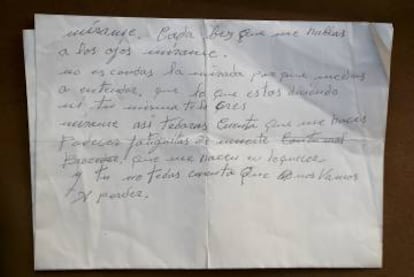 mirame. Cada bez que me hablas
a los ojos mirame.
no escondas la mirada por que me das
a entender, que lo que estas diciendo
ni tu misma te lo cres
mirame asi tedaras cuenta que me haces
fatiguitas de muerte Contu mal
Proceder. que me hacen enloquecer
y tu no tedas cuenta que nos vamos
A perder.